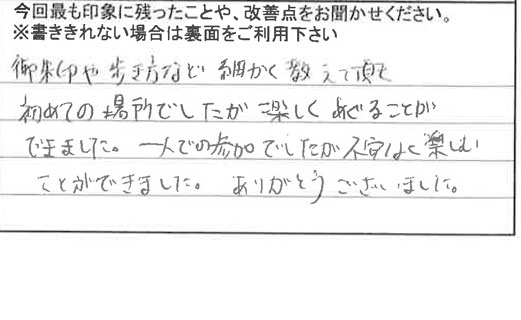 今回最も印象に残ったことや、改善点をお聞かせください。
※書ききれない場合は裏面をご利用下さい
御朱印や歩き方など細かく教えて頂き
初めての場所でしたが楽しくめぐることが
できました。一人での参加でしたが不安なく楽しむ
ことができました。ありがとうございました。